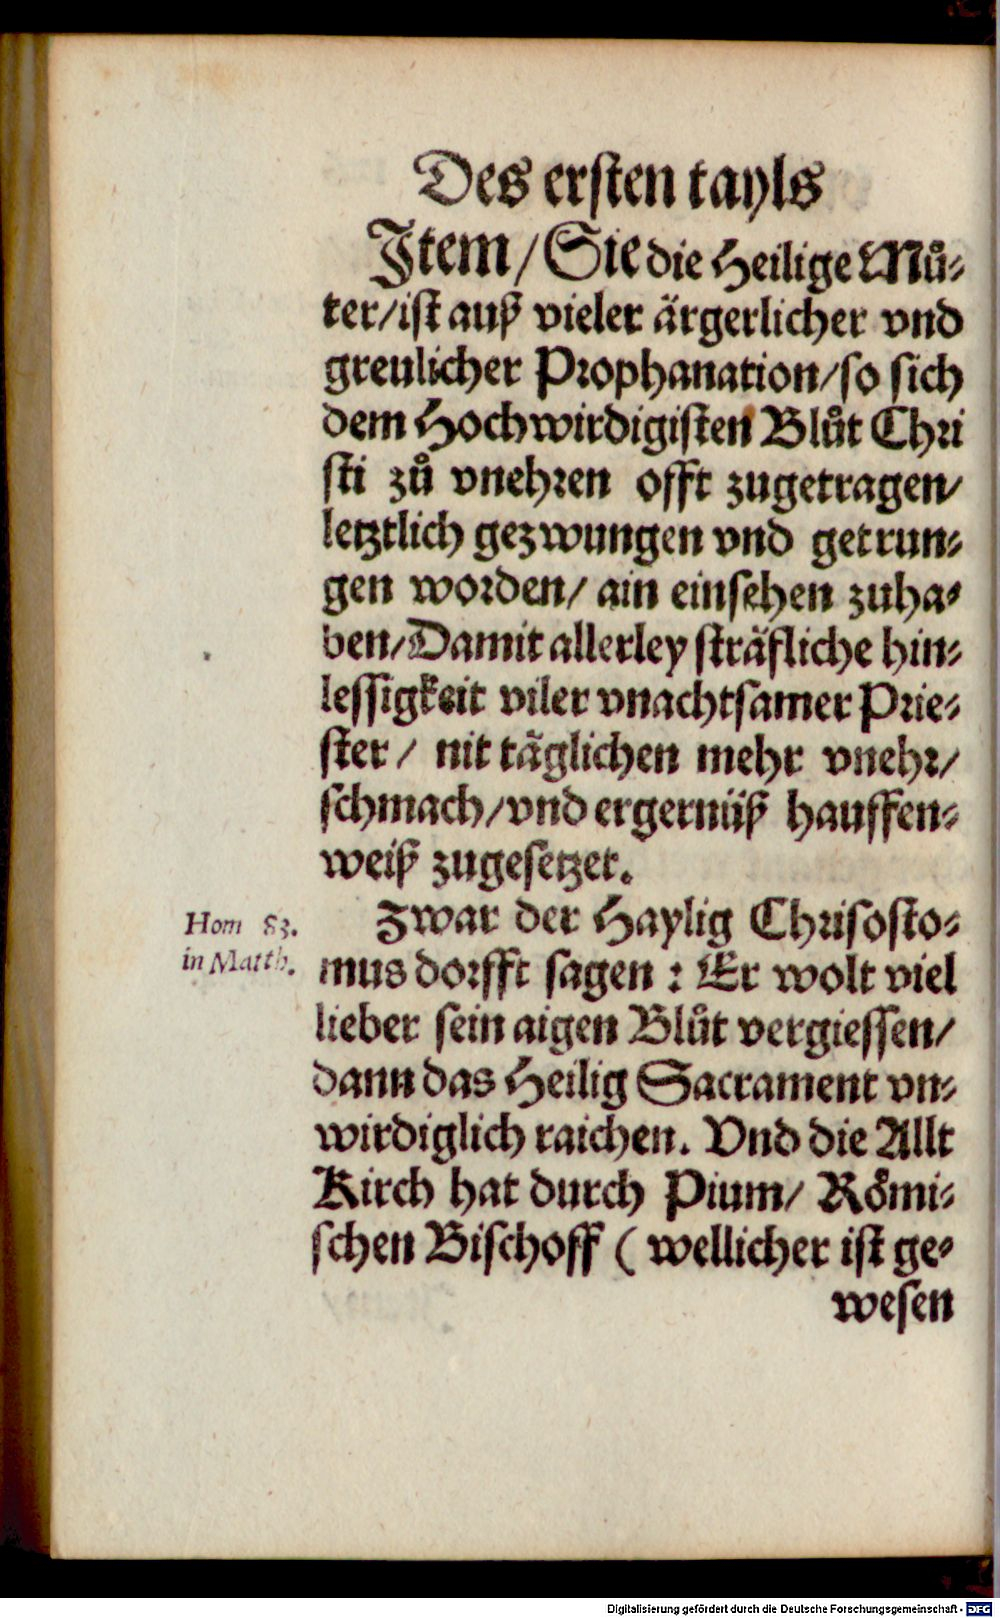 Des ersten tayls
Item/ Sie die Heilige Můͤ-
ter/ist auß vieler ärgerlicher vnd
greulicher Prophanation/so sich
dem Hochwirdigisten Blůt Chri
sti zů vnehren offt zugetragen/
letztlich gezwungen vnd getrun-
gen worden/ ain einsehen zuha-
ben/Damit allerley sträfliche hin-
lessigkeit viler vnachtsamer Prie-
ster/ nit täglichen mehr vnehr/
schmach/vnd ergernüß hauffen-
weiß zugesetzet.
Zwar der Haylig Chrisosto-
Hom 83.
in Matth.
mus dorfft sagen: Er wolt viel
lieber sein aigen Blůt vergiessen/
dann das Heilig Sacrament vn-
wirdiglich raichen. Vnd die Allt
Kirch hat durch Pium/ Römi-
schen Bischoff (wellicher ist ge-
wesen
Digitalisierung gefördert durch die Deutsche Forschungsgemeinschaft - DFG